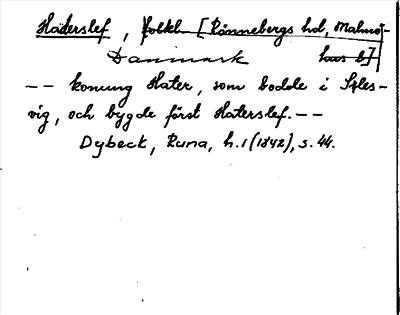 Haterslef, folkl. [Rönnebergs hd, Malmö-
Danmark hus l.]
-- konung Hater, som bodde i Sles-
vig, och bygde först Haterslef. --
Dybeck, Runa, h. 1 (1842), s. 44.